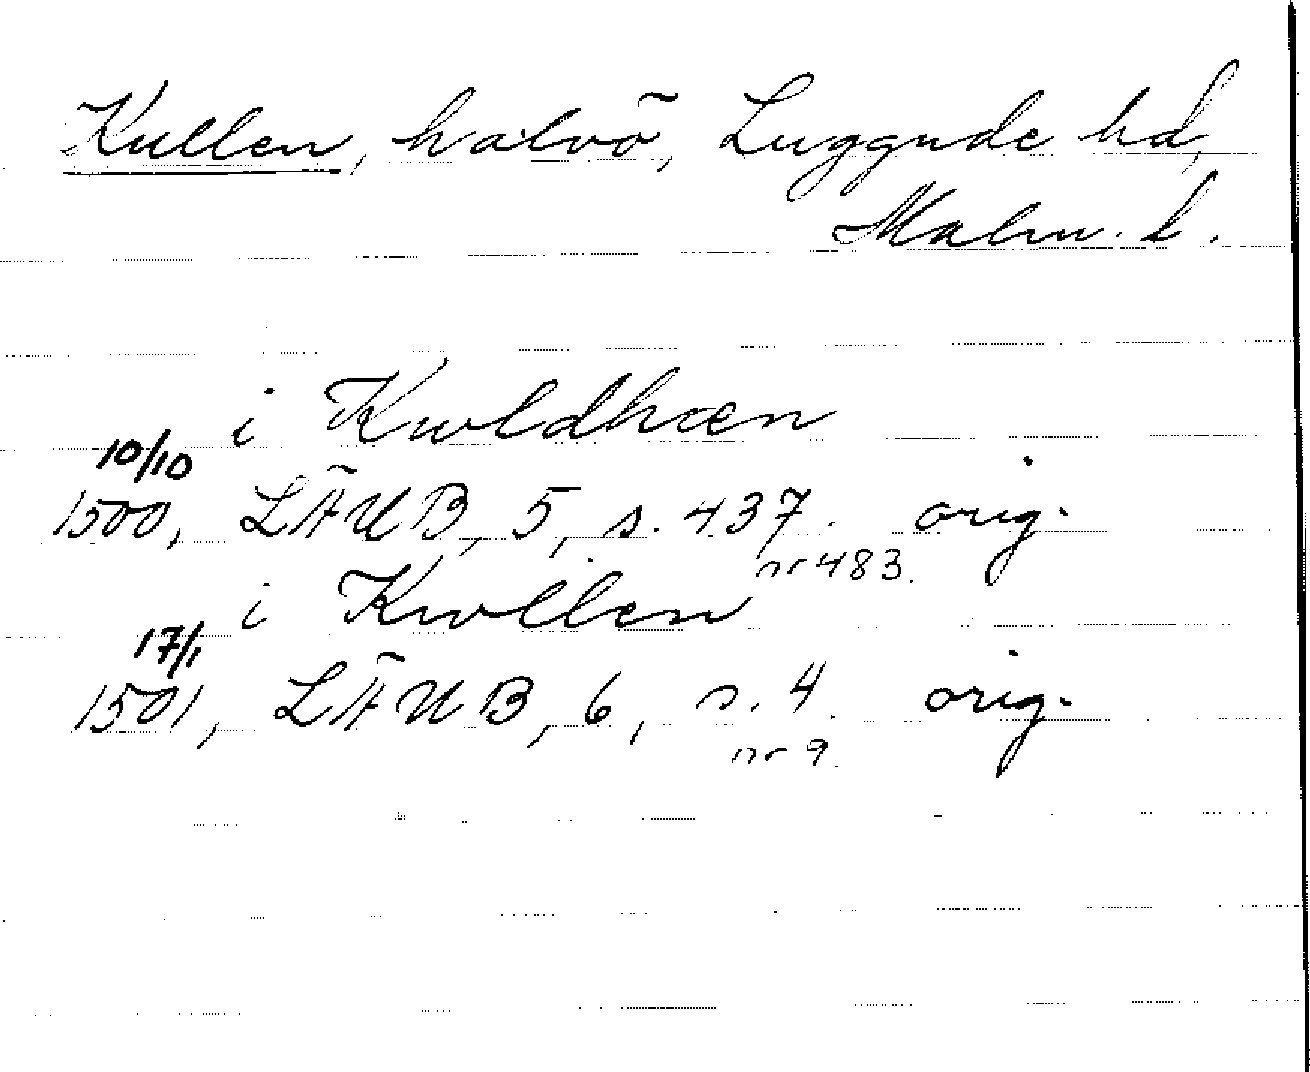 Kullen, halvö, Luggude hd,
Malm. l.
i Kwldhæn
10/10
1500, LÄUB, 5, s. 437. orig.
nr 483.
i Kwllen
17/1
1501, LÄUB, 6, s. 4. orig.
nr 9.